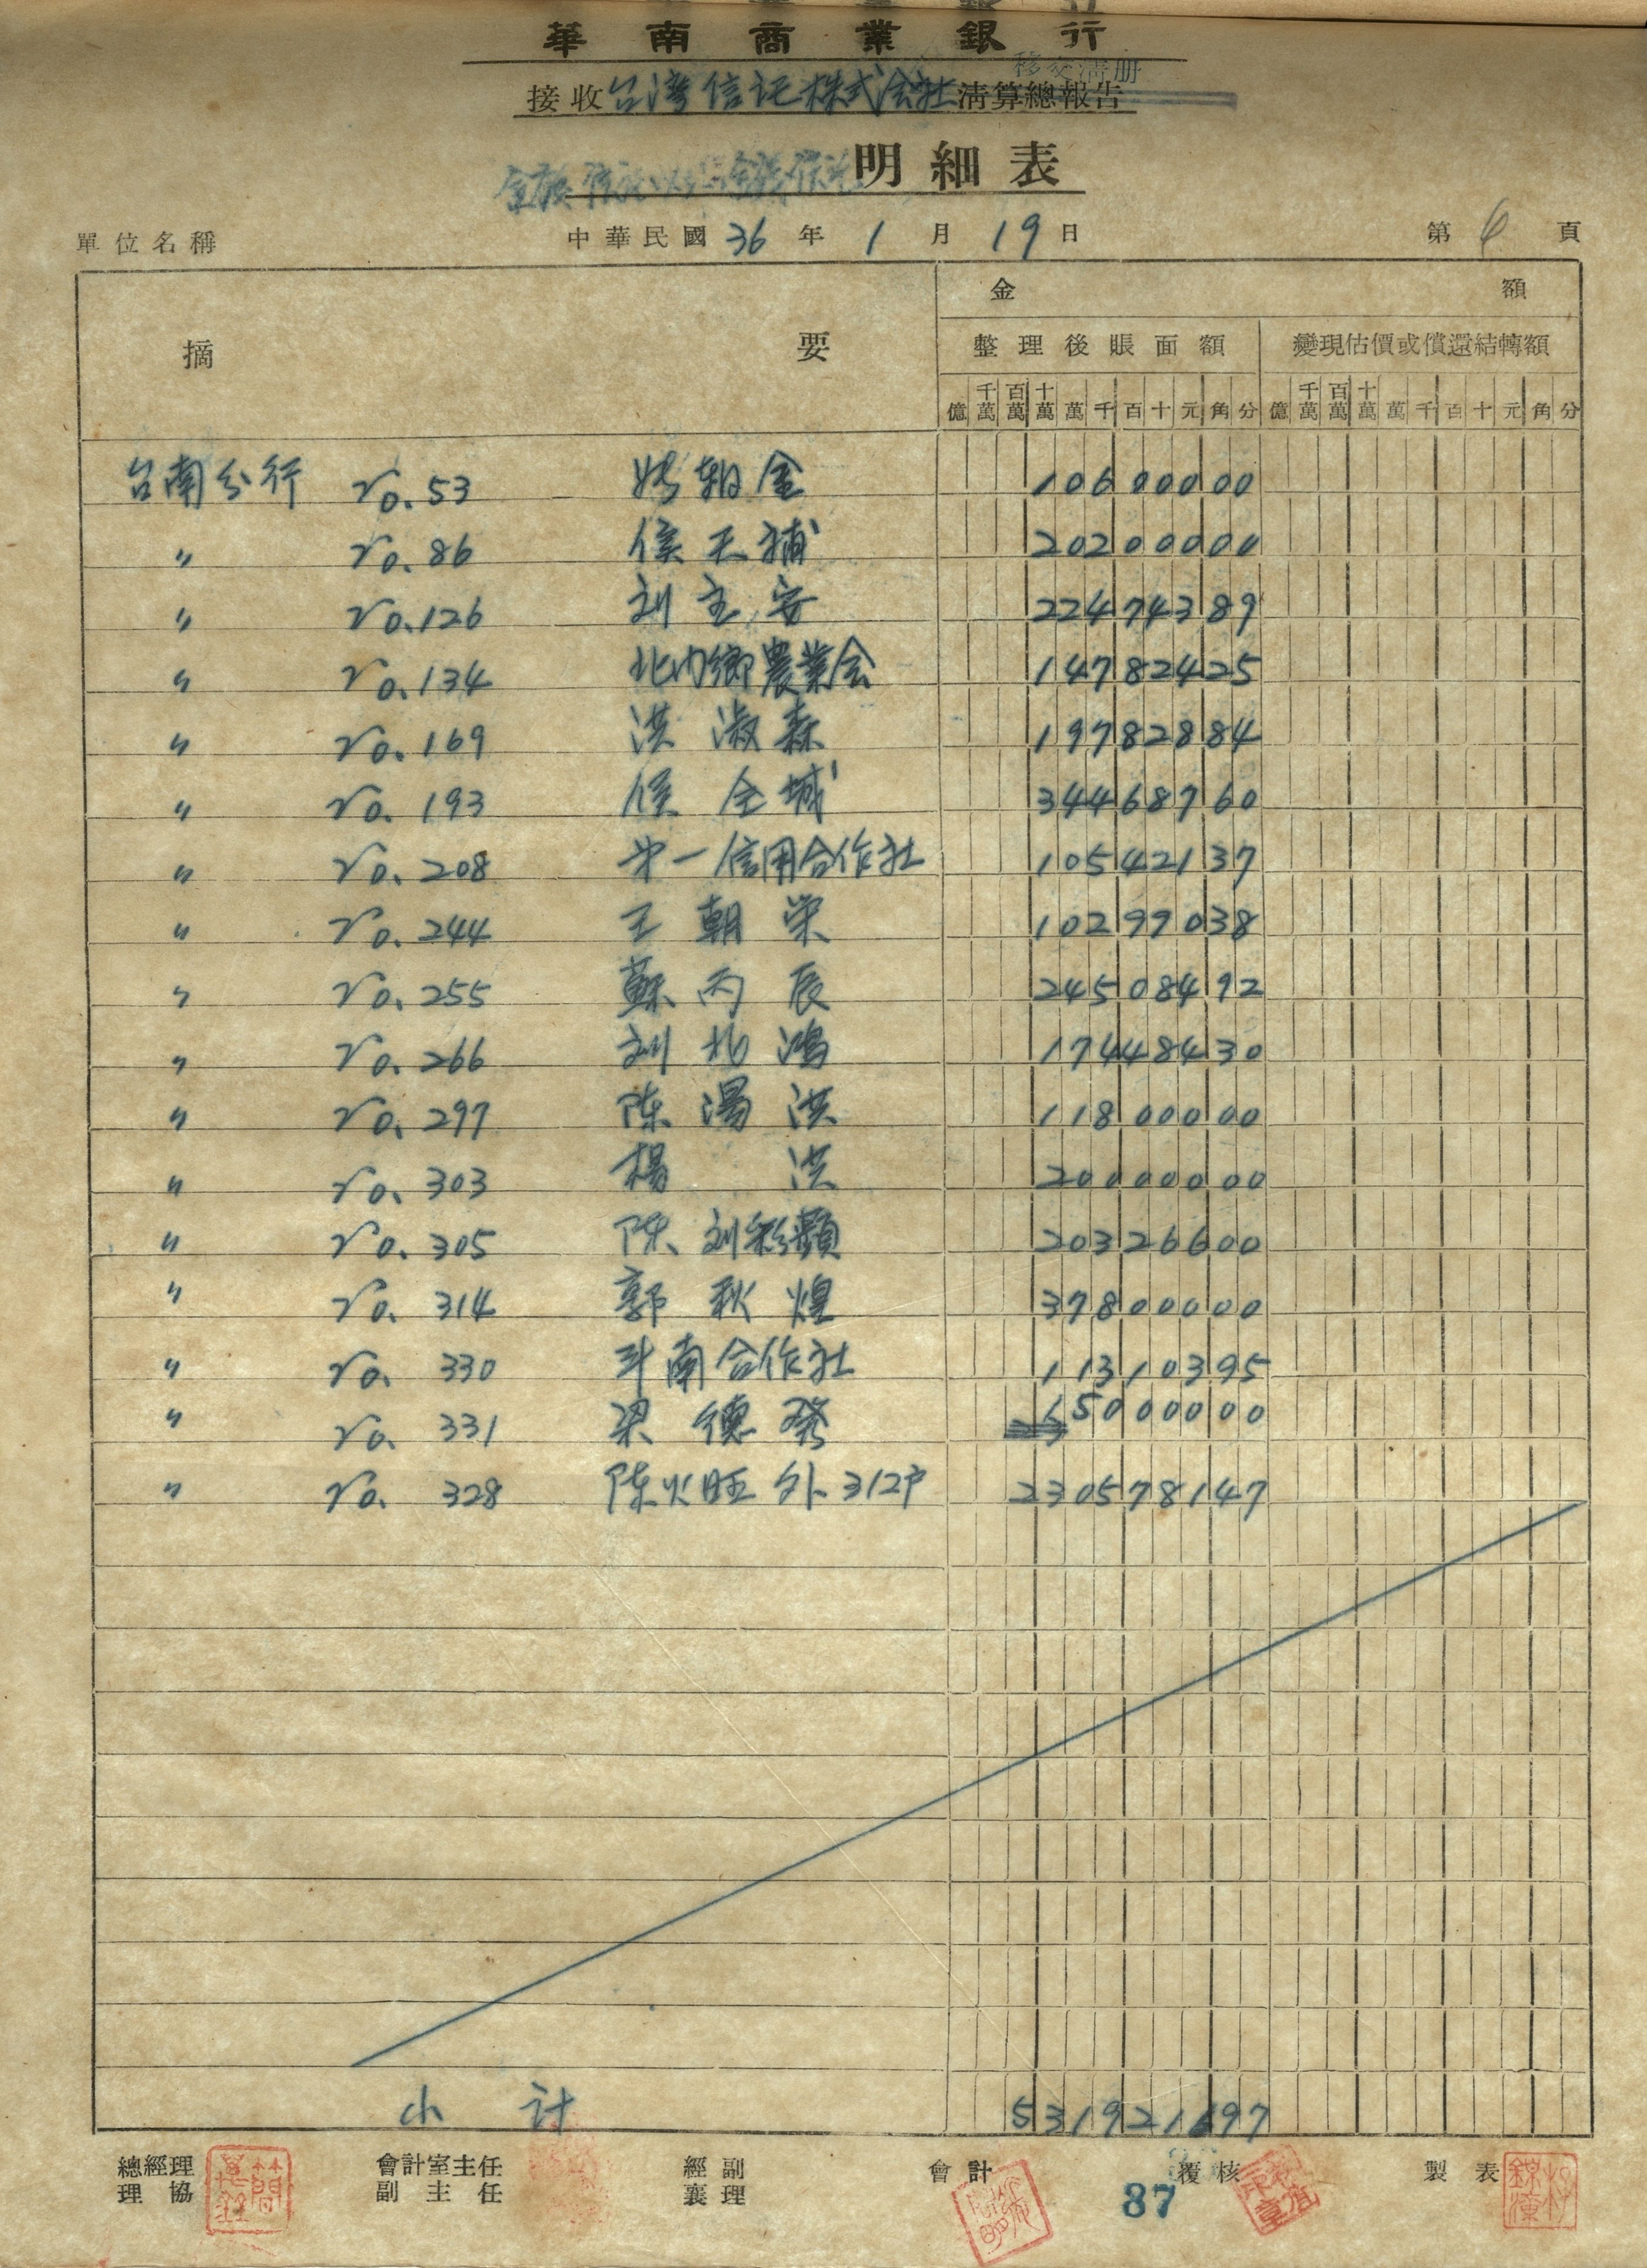 華南商業銀行
移交清册
接收台湾信託株式会社清算總報告
明細表
單位名稱 中華民國 36 年 1 月 19 日 第 6 頁
金額
摘要 整理後賬面額 變現估價或償還結轉額
億 千萬 百萬 十萬 萬 千 百 十 元 角 分 億 千萬 百萬 十萬 萬 千 百 十 元 角 分
台南分行 No. 53 朝金 10600000
〃 No. 86 侯天補 20200000
〃 No. 126 刘主安 22474389
〃 No. 134 北門鄉農業会 14782425
〃 No. 169 洪淑森 19782884
〃 No. 193 侯全城 34468760
〃 No. 208 第一信用合作社 10542137
〃 No. 244 王朝栄 10299038
〃 No. 255 蘇丙辰 24508492
〃 No. 266 刘北鴻 17448430
〃 No. 297 陈湯洪 11800000
〃 No. 303 楊洪 20000000
〃 No. 305 陈刘彩顕 20326600
〃 No. 314 郭秋煌 37800000
〃 No. 330 斗南合作社 11310395
〃 No. 331 梁德發 15000000
〃 No. 328 陈火旺外312户 230578147
小計 531921697
總經理 協理 會計室主任 副主任 經副襄理 會計 覆核 製表
87